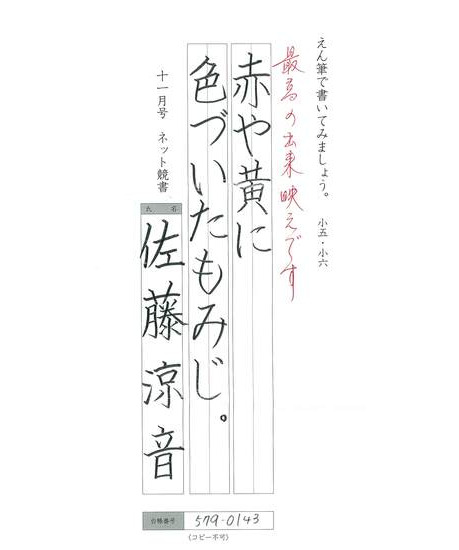 えん筆で書いてみましょう。 小五・小六
最高の出来映えです
赤や黄に
色づいたもみじ。
十一月号 ネット競書
氏名
佐藤涼音
会員番号
579-0143
(コピー不可)